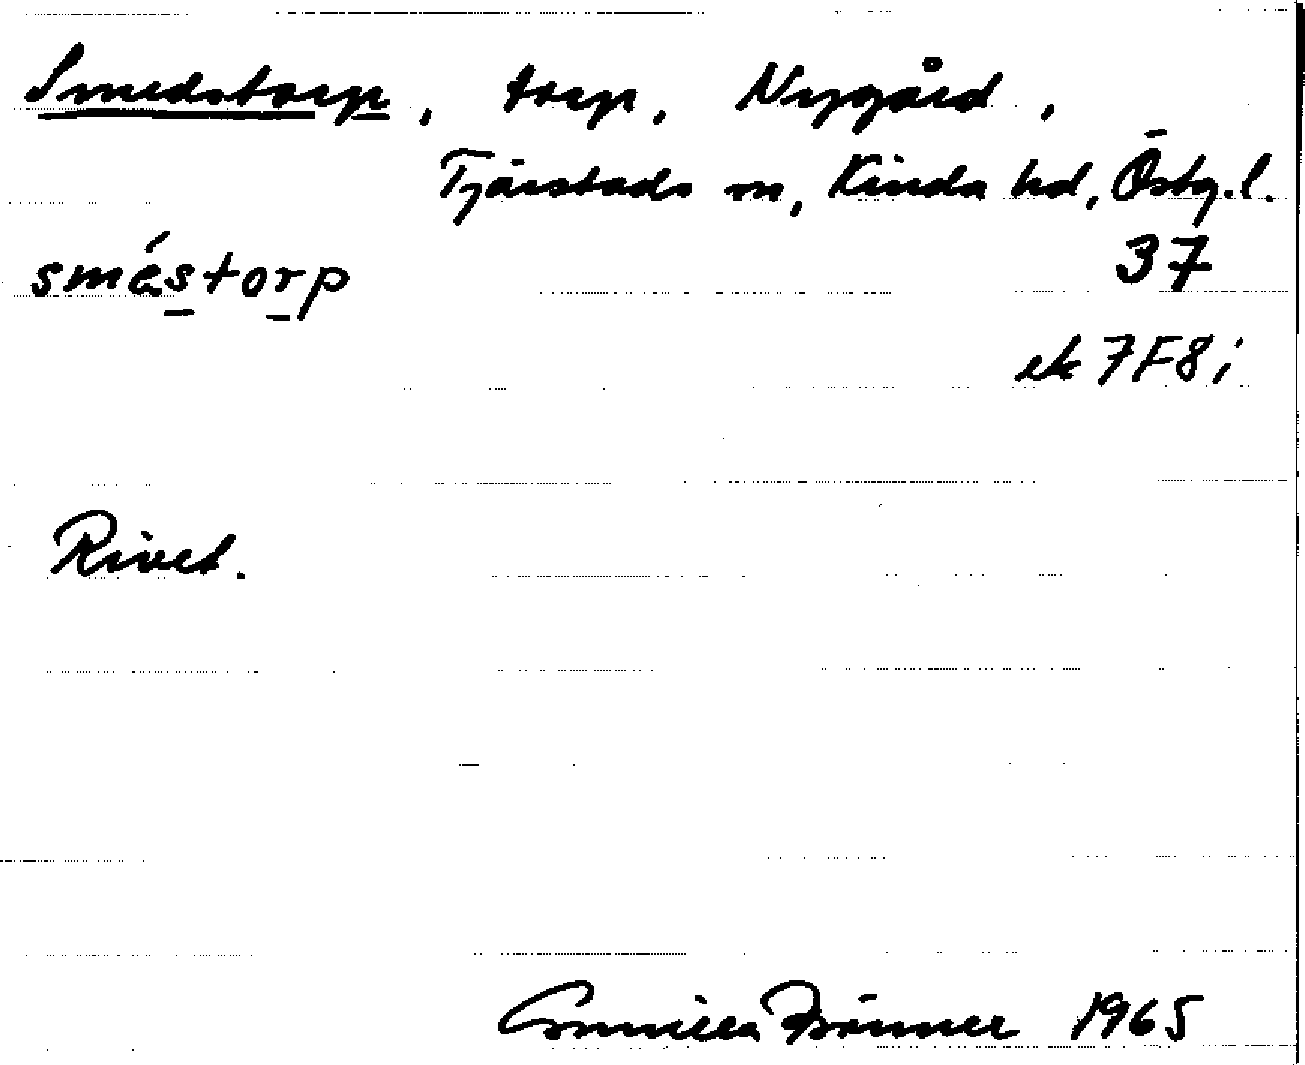 Smedstorp, torp, Nygård,
Tjärstads sn, Kinda hd, Östg.l.
sméstorp 37
ek 7F8i
Rivet.
Gunilla 1965